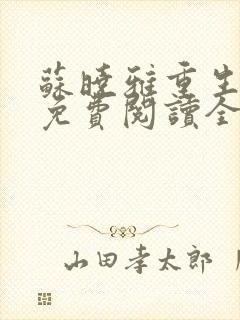 蘇曉雅重生
免費閱讀全
山田孝太郎